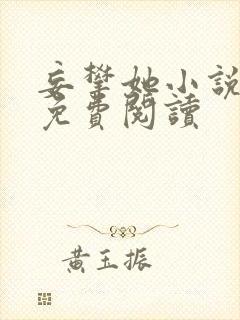 妄攀她小說
免費閱讀
黃玉振